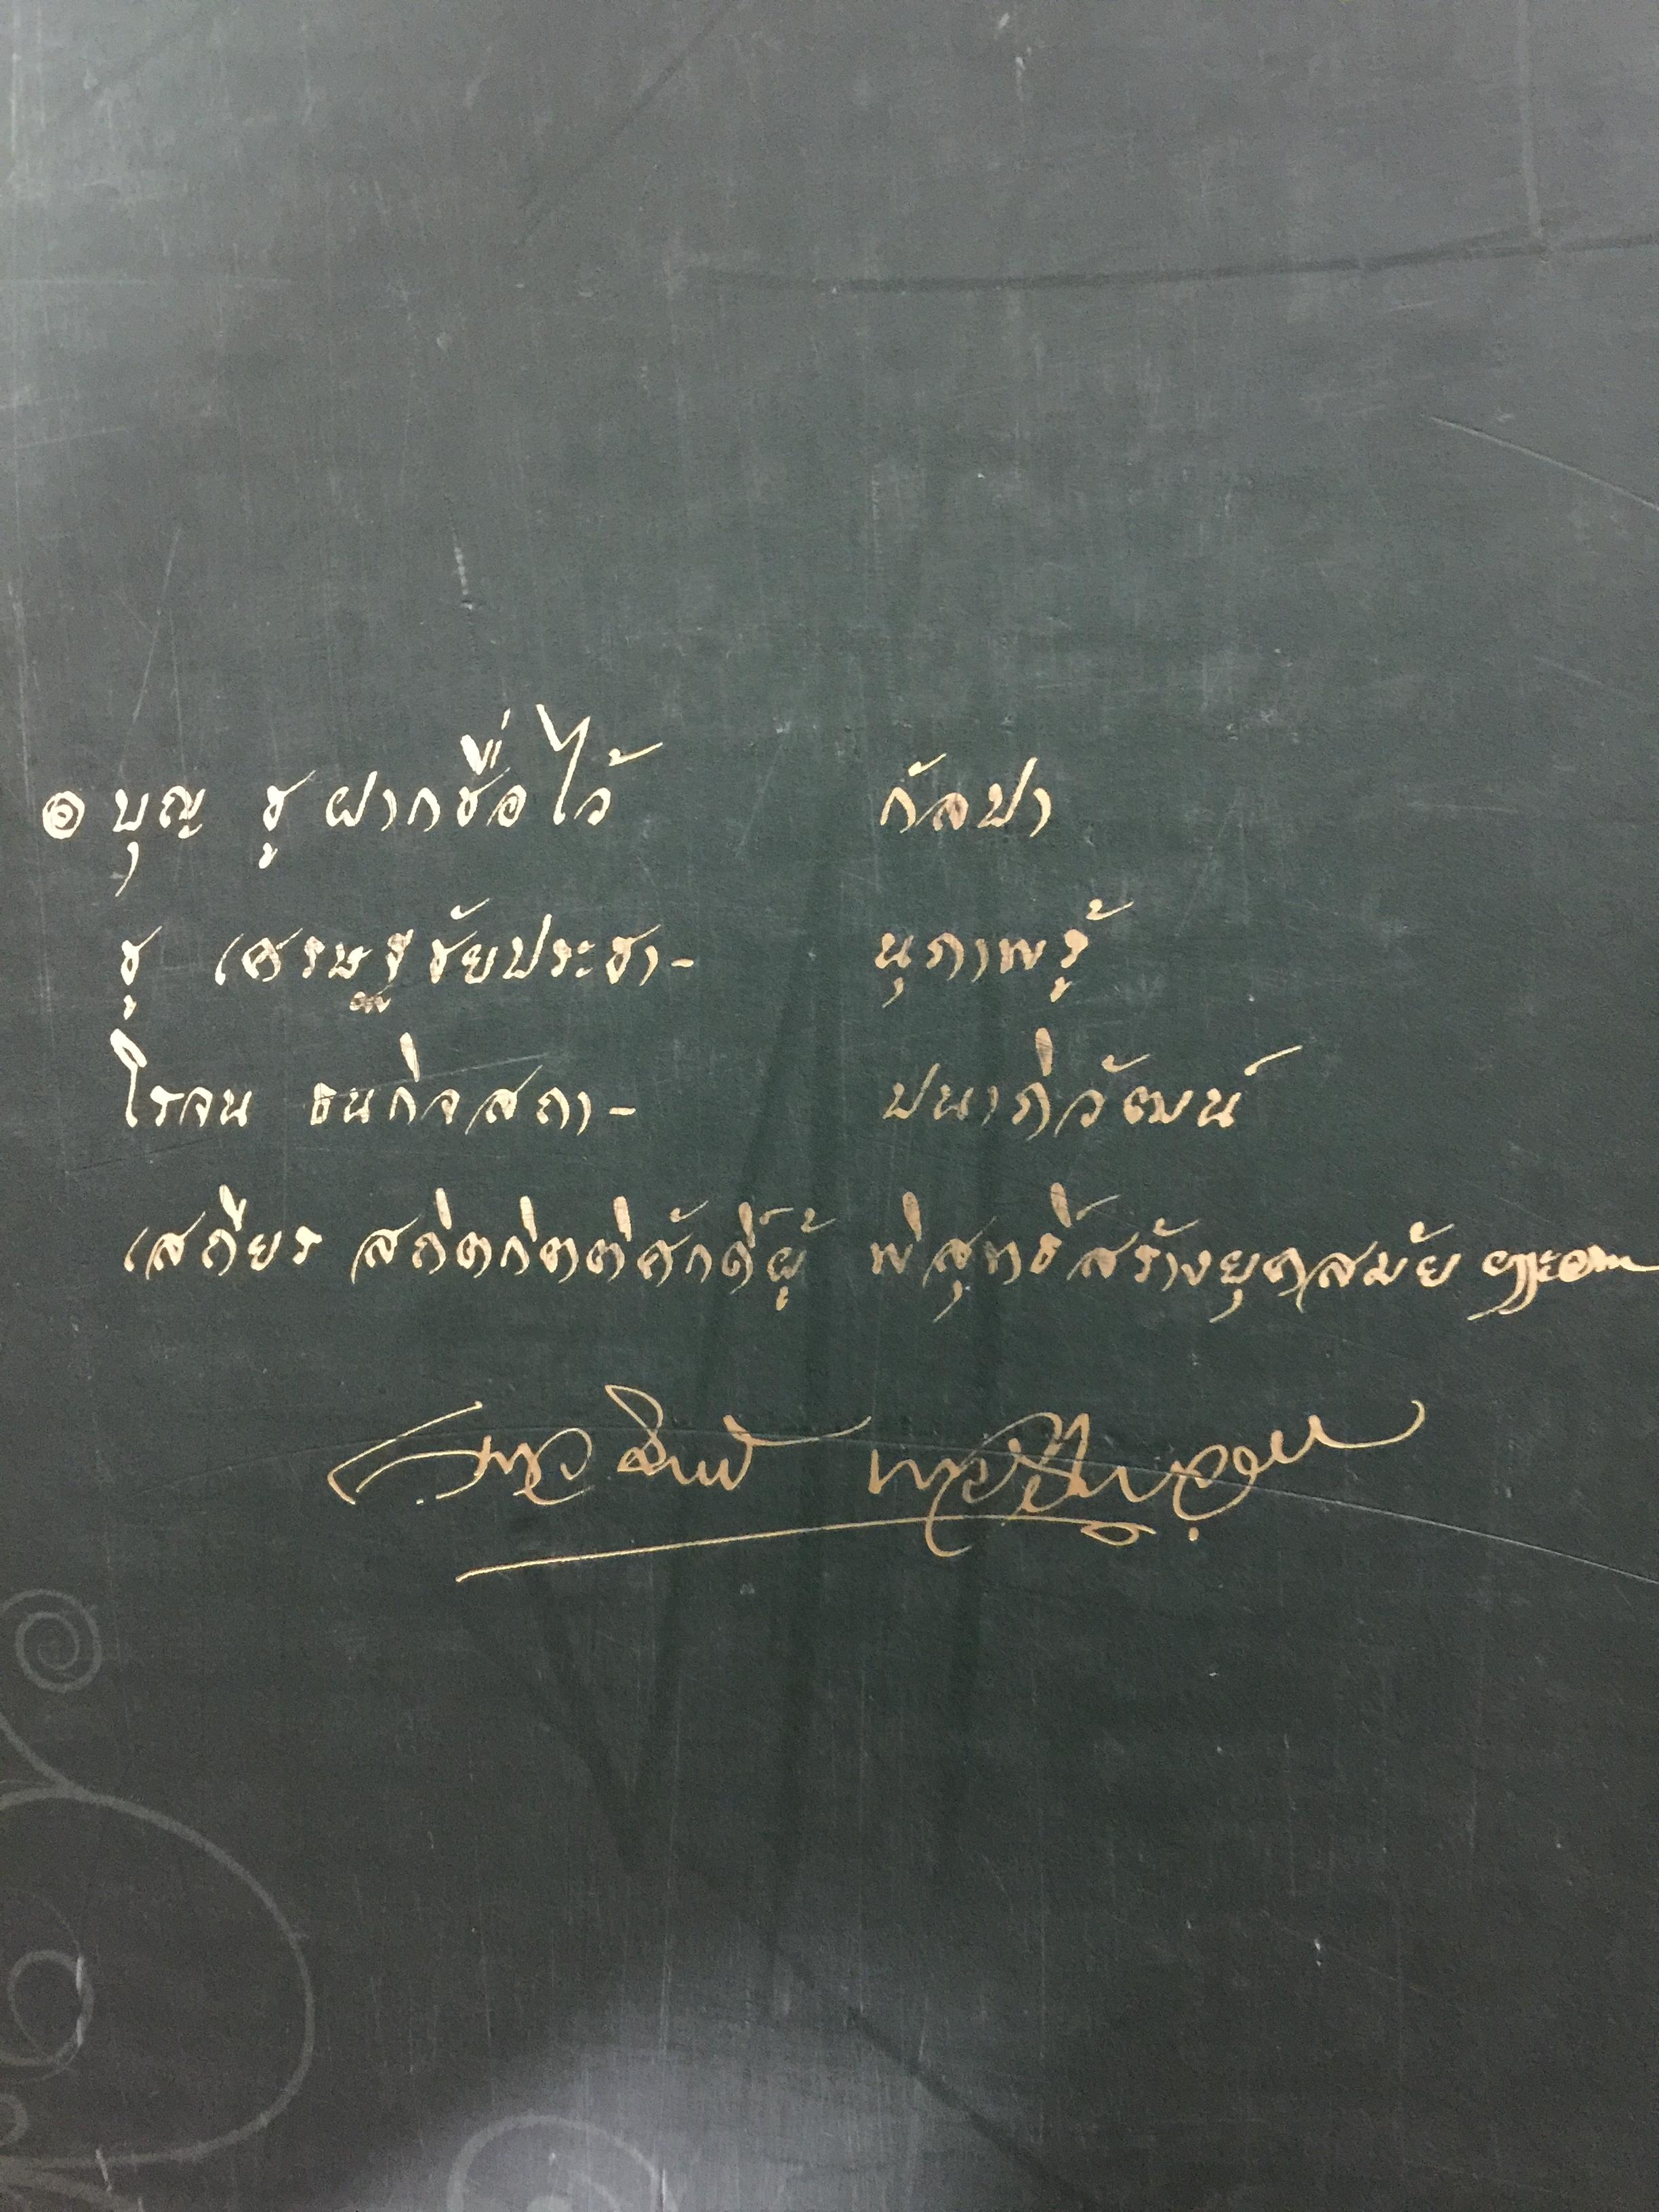 ๏ บุญ ชู ฝากชื่อไว้ กัลปา
ชู เศรษฐกิจชัยประชา- นุภาพรู้
โรจน ธนกิจสถา- ปนาภิวัฒน์
เสถียร สถิตกิตติศักดิ์ผู้ พิสุทธิ์สร้างยุคสมัย
เนาวรัตน์ พงษ์ไพบูลย์